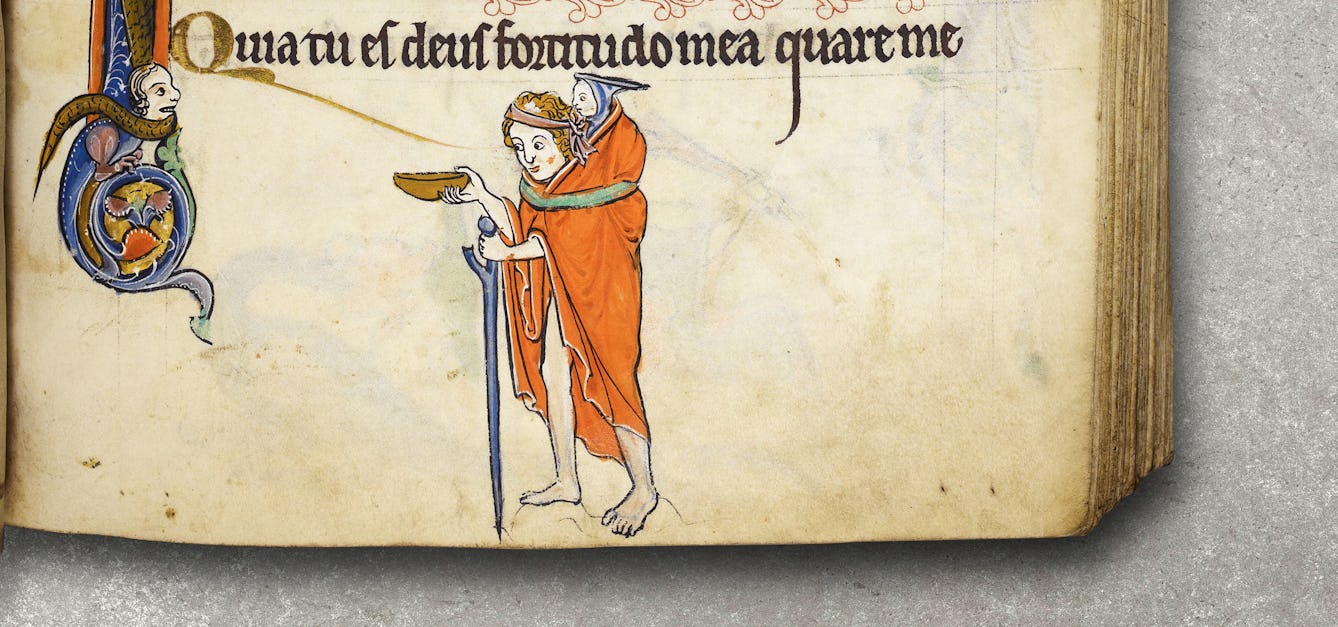 Quia tu es deus fortitudo mea quare me